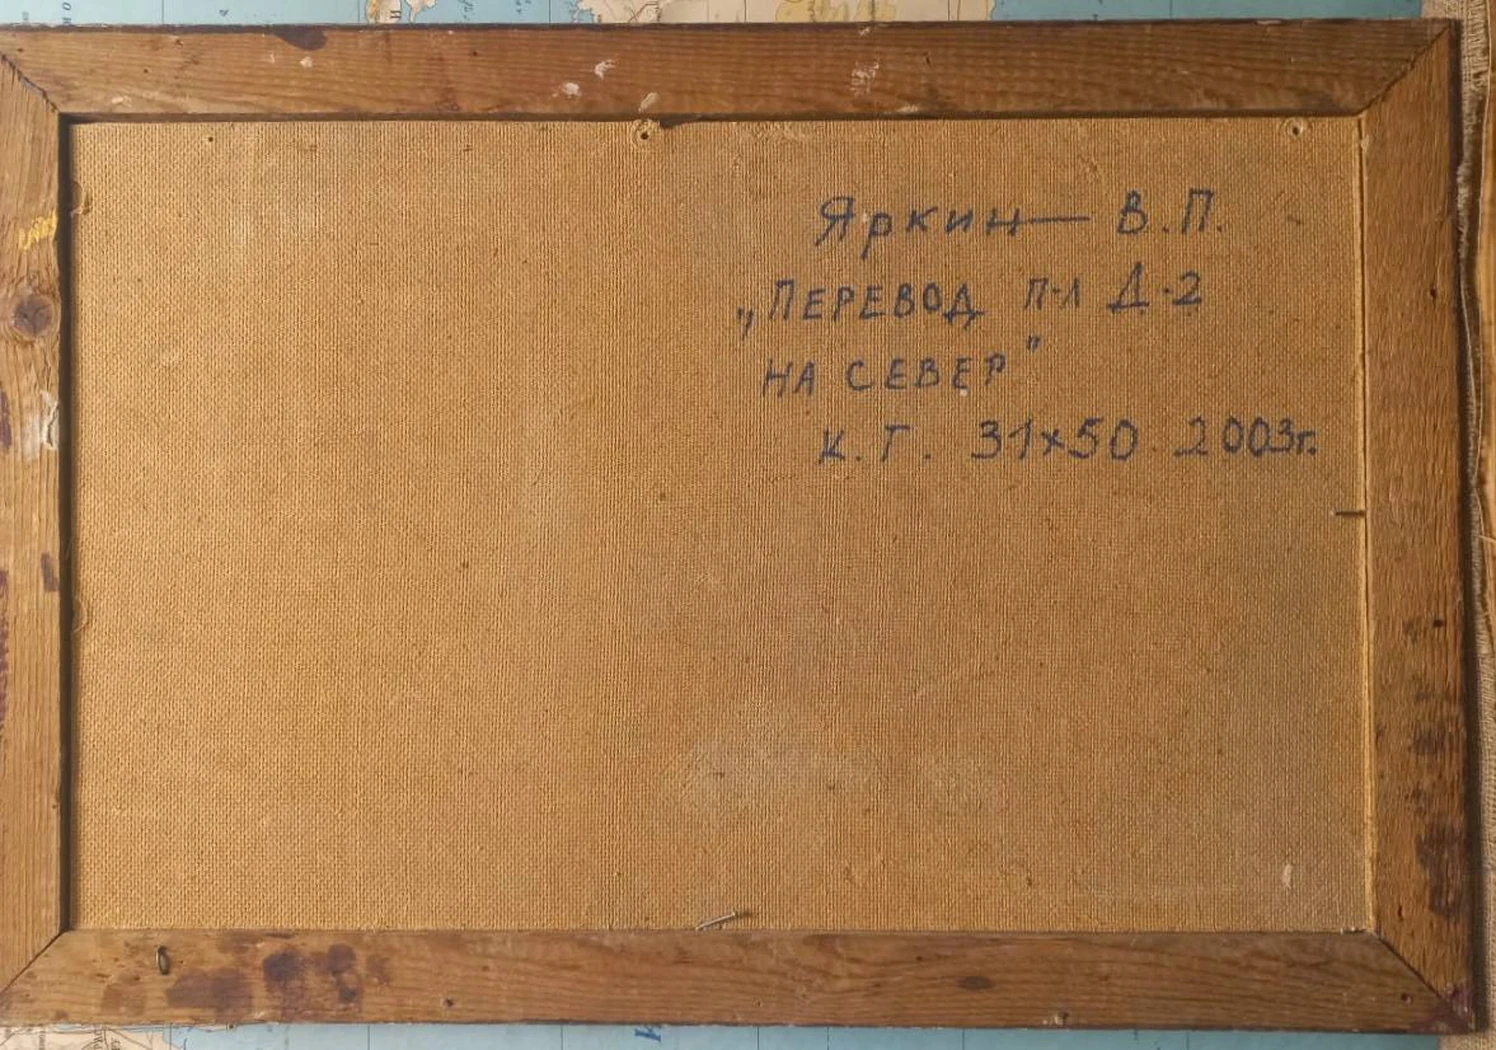 Яркин— В.П.
„ПЕРЕВОД П-Л Д-2
НА СЕВЕР"
К.Г. 31х50 2003г.